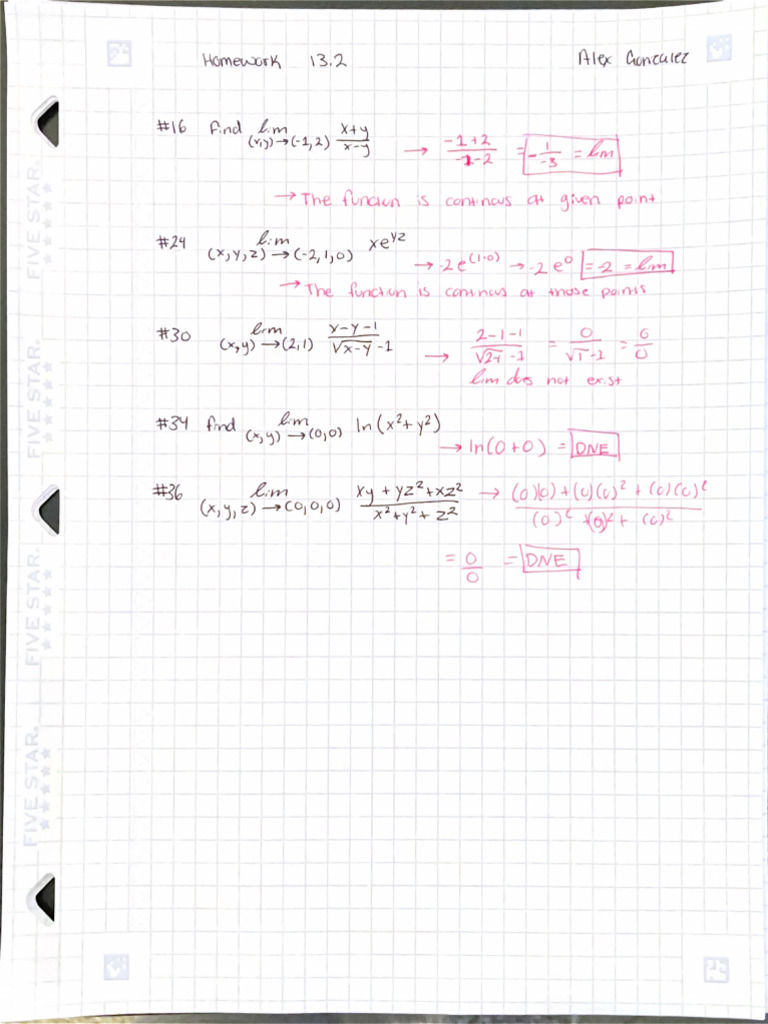 Homework 13.2 Alex Gonzalez
#16 Find lim (x,y)→(-1,2) x+y/x-y → -1+2/-1-2 = -1/-3 = lim
→ The function is continous at given point
#24 lim (x,y,z)→(-2,1,0) xe^yz → -2e^(1·0) → -2e^0 = -2 = lim
→ The function is continous at those points
#30 lim (x,y)→(2,1) x-y-1/√x-y -1 → 2-1-1/√2-1 -1 = 0/√1-1 = 0/0
lim does not exist
#34 find lim (x,y)→(0,0) ln(x²+y²)
→ ln(0+0) = DNE
#36 lim (x,y,z)→(0,0,0) xy+yz²+xz²/x²+y²+z² → (0)(0)+(0)(0)²+(0)(0)²/(0)²+(0)²+(0)²
= 0/0 = DNE
FIVE STAR.
FIVE STAR.
FIVE STAR.
FIVE STAR.